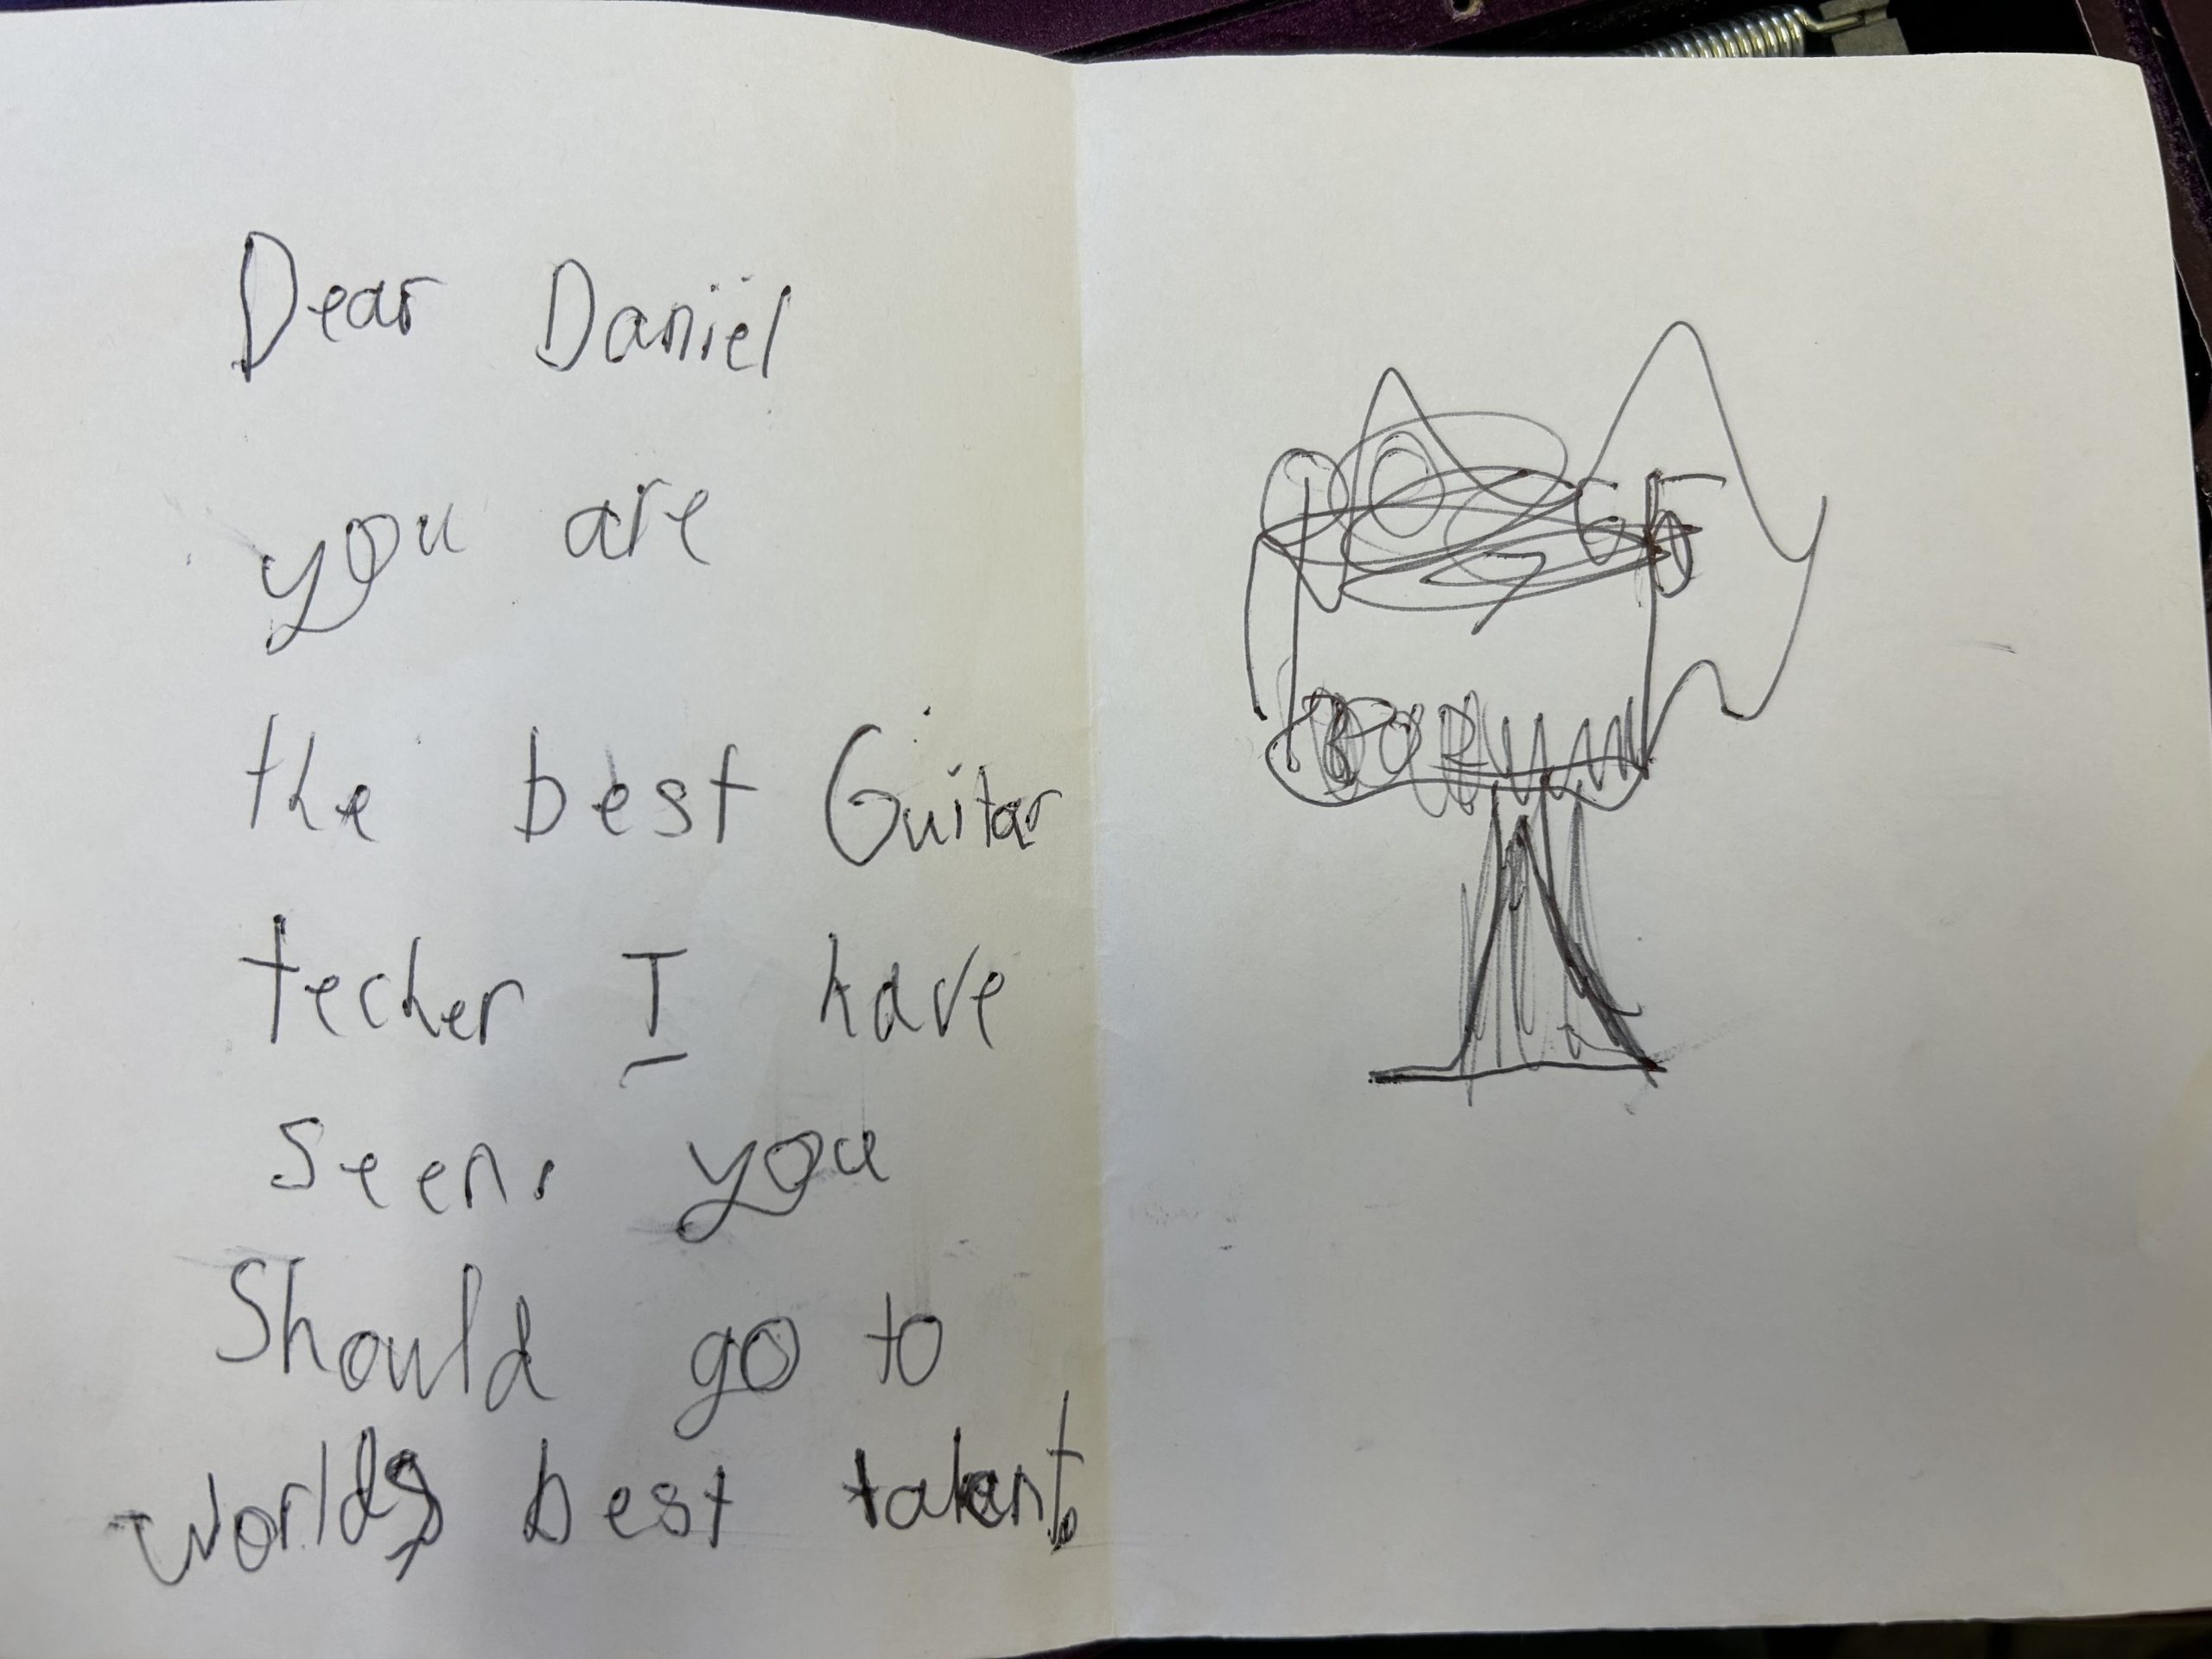 Dear Daniël
you are
the best Guitar
techer I have
seen. you
Should go to
worlds best talent.